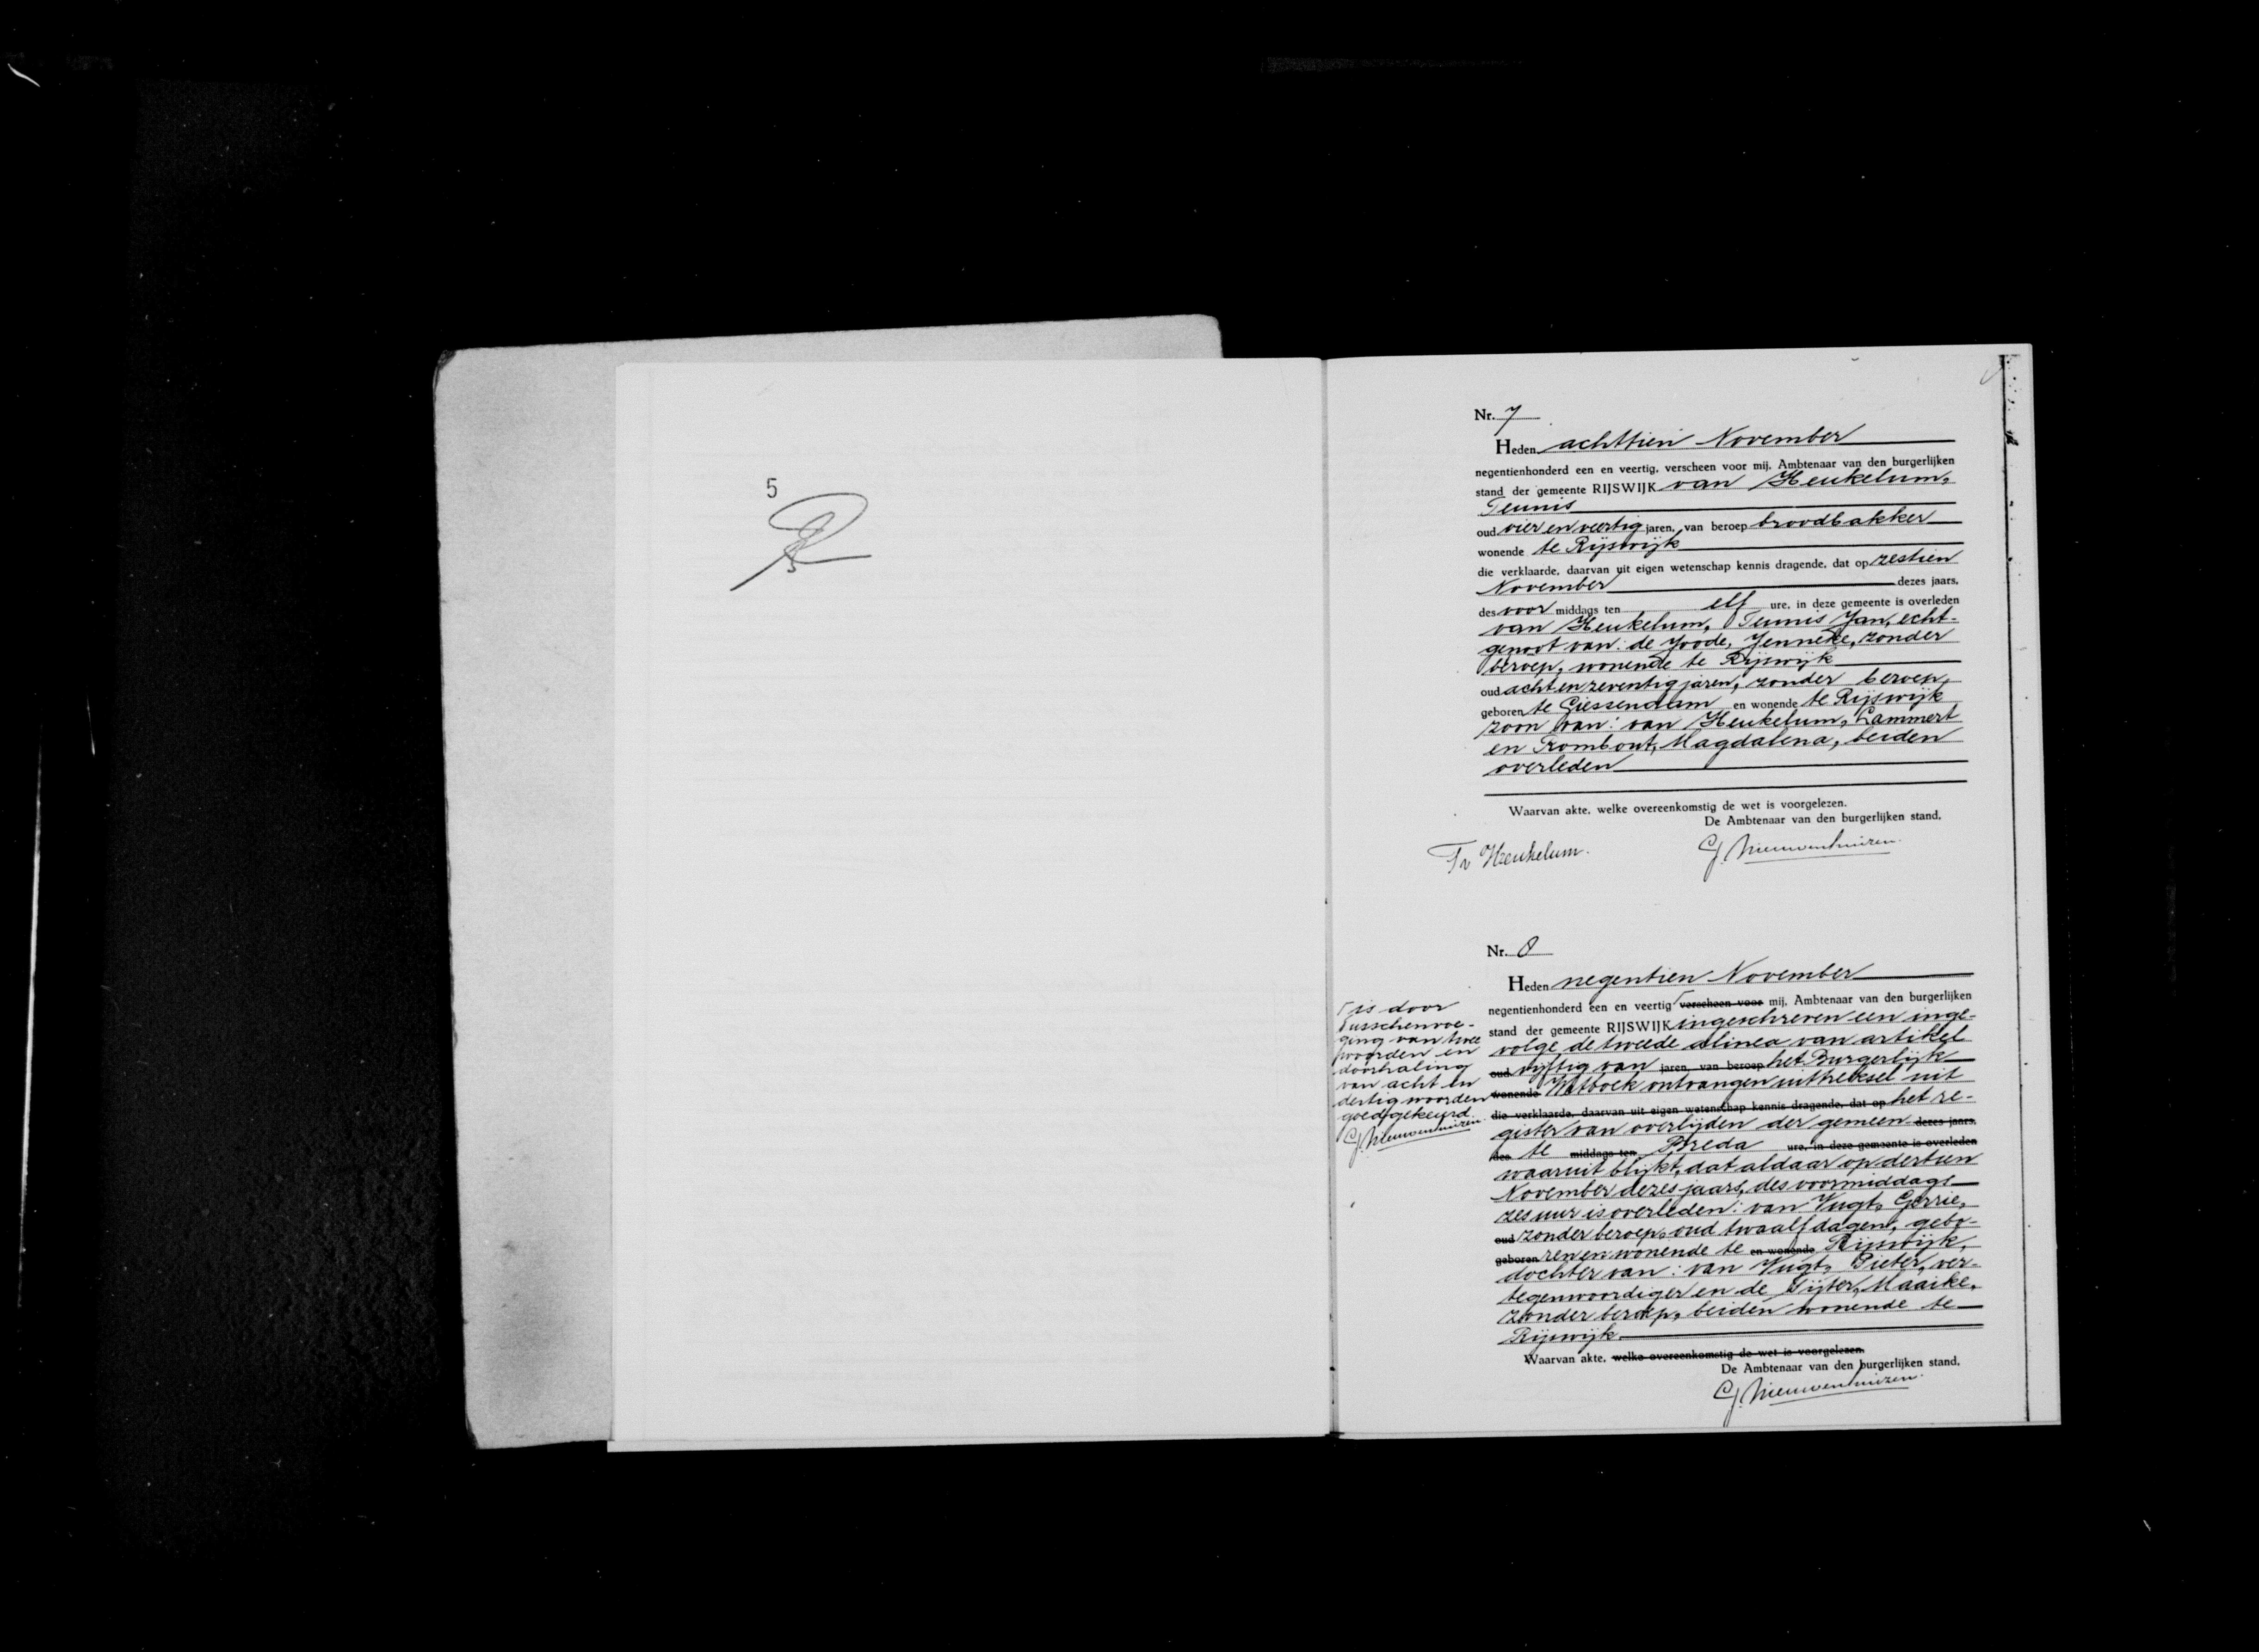 5
Nr. 7
Heden achttien November
negentienhonderd een en veertig, verscheen voor mij, Ambtenaar van den burgerlijken
stand der gemeente RIJSWIJK van Heukelum,
Teunis
oud vier en veertig jaren, van beroep broodbakker
wonende te Rijswijk
die verklaarde, daarvan uit eigen wetenschap kennis dragende, dat op zestien
November dezes jaars,
des voor middags ten elf ure, in deze gemeente is overleden
van Heukelum, Teunis Jan, echt-
genoot van: de Joode, Jenneke, zonder
beroep, wonende te Rijswijk
oud acht en zeventig jaren, zonder beroep,
geboren te Giessendam en wonende te Rijswijk
zoon van: van Heukelum, Lammert
en Trombout, Magdalena, beiden
overleden
Waarvan akte, welke overeenkomstig de wet is voorgelezen.
De Ambtenaar van den burgerlijken stand,
T v Heukelum.
G. Nieuwenhuizen.
Nr. 8
Heden negentien November
negentienhonderd een en veertig verscheen voor mij, Ambtenaar van den burgerlijken
stand der gemeente RIJSWIJK ingeschreven een inge-
volge de tweede alinea van artikel
oud vijftig van jaren, van beroep het Burgerlijk
wonende Wetboek ontvangen uittreksel uit
die verklaarde, daarvan uit eigen wetenschap kennis dragende, dat op het re-
gister van overlijden der gemeen- dezes jaars,
des te middags ten Breda ure, in deze gemeente is overleden
waaruit blijkt, dat aldaar op dertien
November dezes jaars, des voormiddags
zes uur is overleden: van Vugt, Gerrie,
oud zonder beroep, oud twaalf dagen, gebo-
geboren ren en wonende te en wonende Rijswijk,
dochter van: van Vugt, Pieter, ver-
tegenwoordiger en de Pijter, Maaike,
zonder beroep, beiden wonende te
Rijswijk
Waarvan akte, welke overeenkomstig de wet is voorgelezen.
De Ambtenaar van den burgerlijken stand,
G. Nieuwenhuizen.
is door
tusschenvoe-
ging van twee
woorden en
doorhaling
van acht en
dertig woorden
goedgekeurd.
G. Nieuwenhuizen.